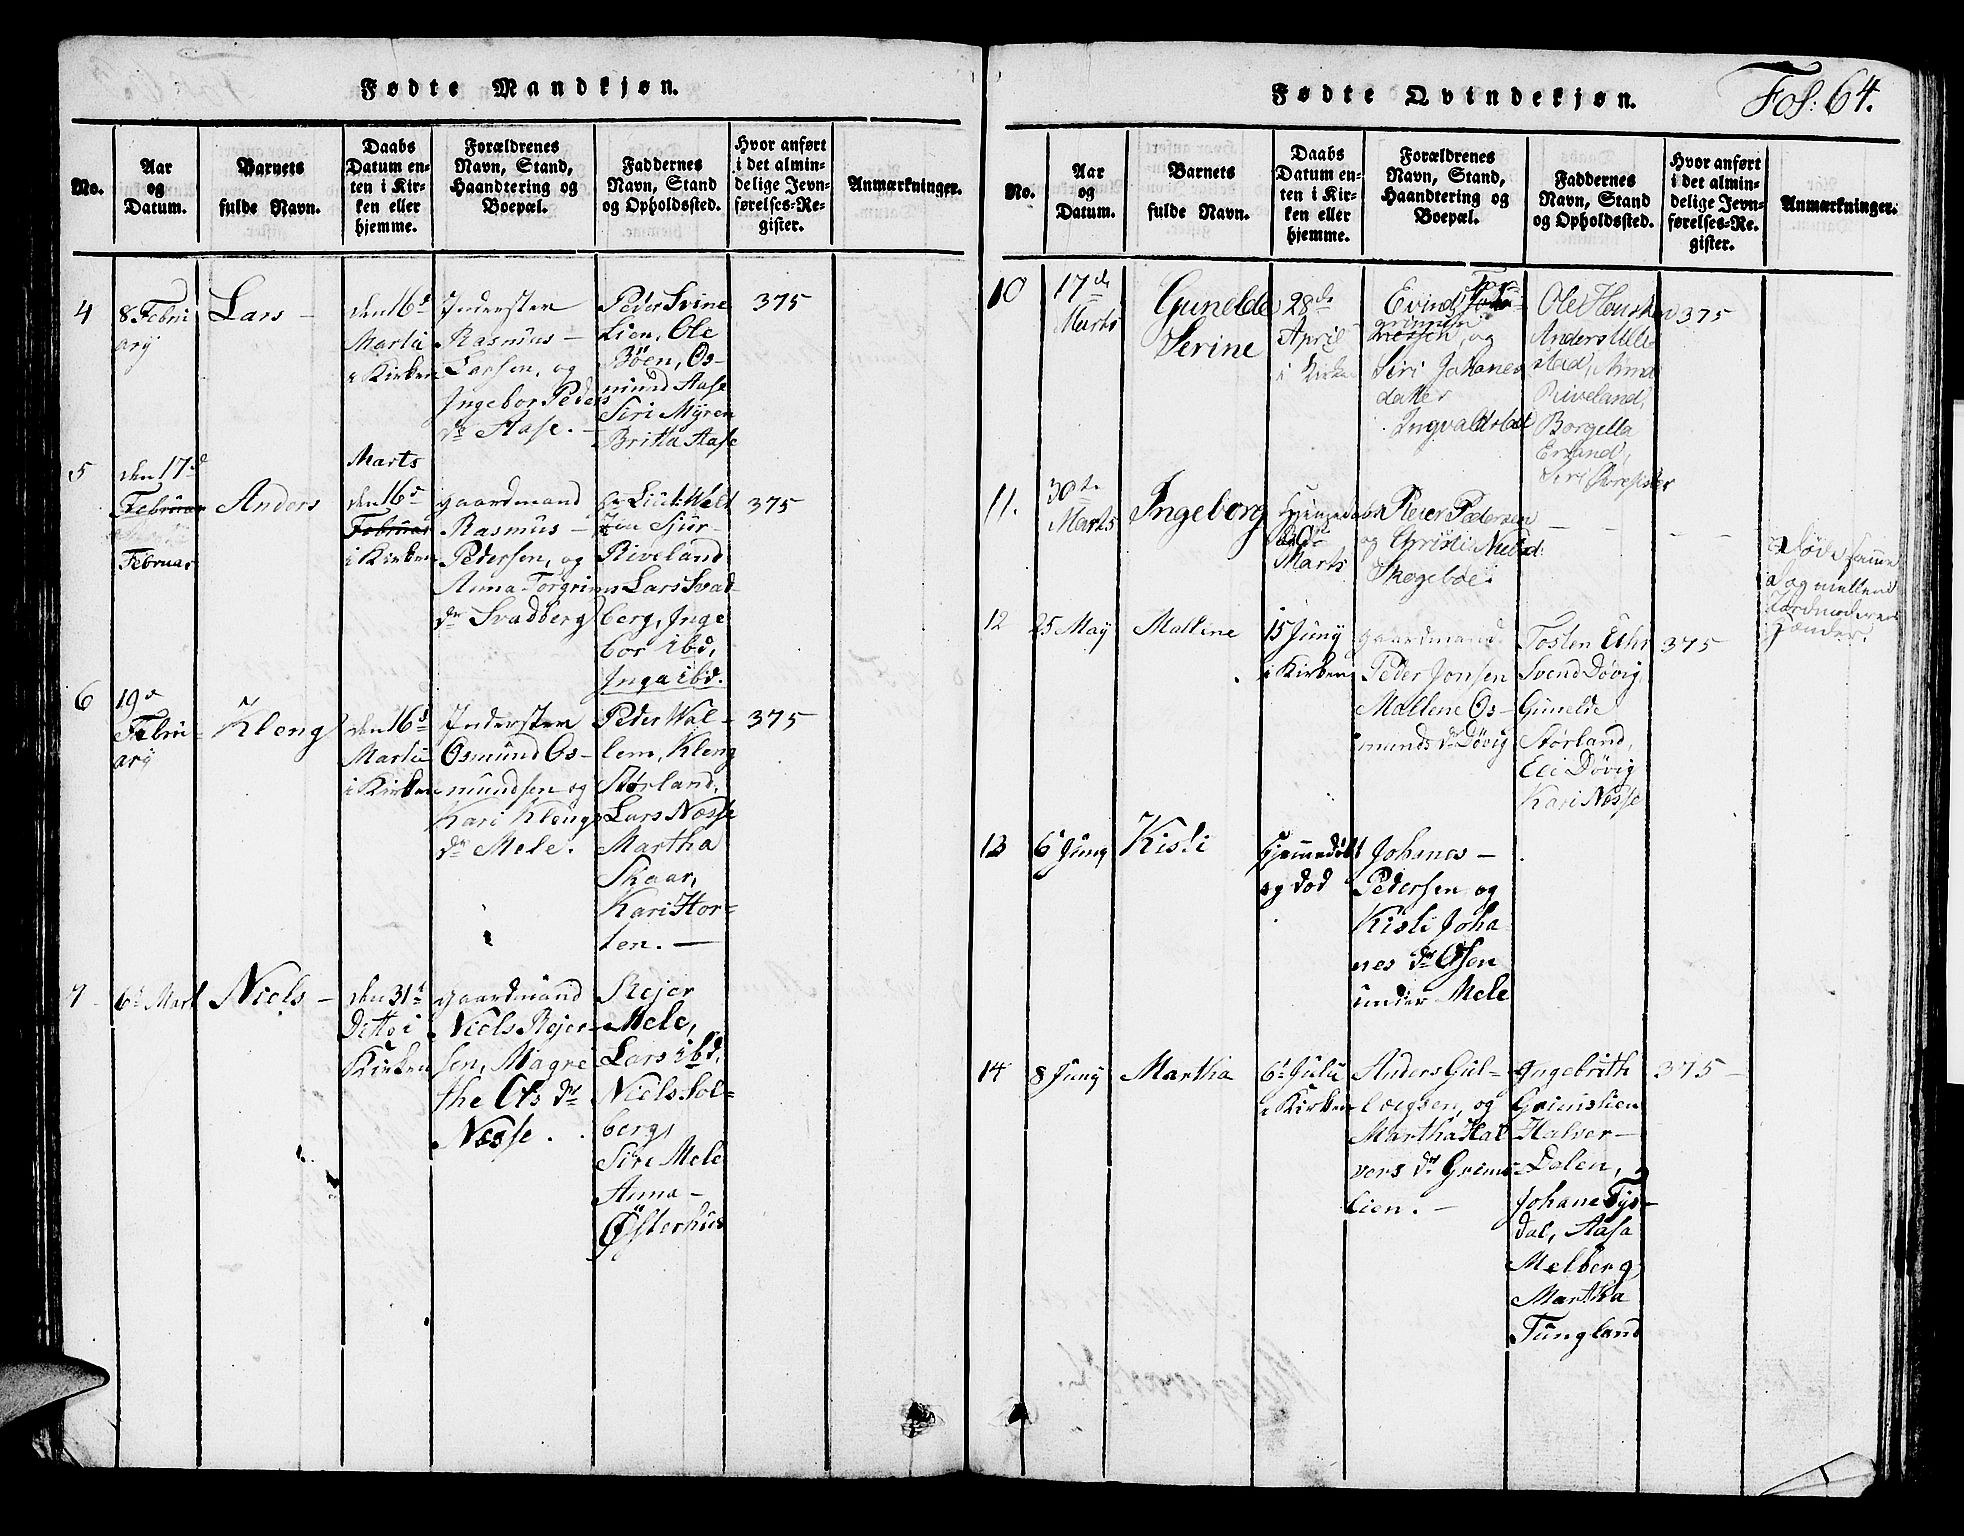 Fødte Mandkjøn.
No.
Aar
og
Datum.
Barnets
fulde Navn.
Daabs
Datum en-
ten i Kir-
ken eller
hjemme.
Forældrenes
Navn, Stand,
Haandtering og
Boepæl.
Faddernes
Navn, Stand
og Opholdssted.
Hvor anført
i det almin-
delige Jevn-
førelses-Re-
gister.
Anmærkninger.
4
8 Febru
ary
Lars
den 16d
Martii
i Kirken
Inderster
Rasmus
Larsen, og
Ingebor Peders
dr Aase.
Peder Svine
Lien, Ole
Böen, Os-
mund Aase
Siri Myren
Britta Aase
375
5
den 17d
Februar
Februar
Anders
Marts
den 16d
Februar
i Kirken
gaardmand
Rasmus
Pedersen, og
Anna Torgrims
dr Svadberg
Sjur
Riveland
Lars Svad-
berg, Inge
bor ibd,
Inga ibd.
375
6
19d
Febru-
ary
Kleng
den 16d
Martii
i Kirken
Inderster
Osmund Os-
mundsen og
Kari Klengs
dr Mele.
Peder Wal-
lem, Kleng
Størland,
Lars Nesse
Martha
Skaar,
Kari Hor-
ten.
375
7
6d Mart
Niels
den 31d
Ditto i
Kirken
gaardmand
Niels Rejer-
sen, Magre
the Ols dr
Nesse.
Rejer
Mele,
Lars ibd,
Niels Sol-
berg,
Siri Mele
Anna
Østerhus
Fødte Qvindekjøn.
Fol: 64.
No.
Aar
og
Datum.
Barnets
fulde Navn.
Daabs
Datum en-
ten i Kir-
ken eller
hjemme.
Forældrenes
Navn, Stand,
Haandtering og
Boepæl.
Faddernes
Navn, Stand
og Opholdssted.
Hvor anført
i det almin-
delige Jevn-
førelses-Re-
gister.
Anmærkninger.
10
17de
Marts
Gunelde
Serine
28de
April
i Kirken
Evind Tor-
grimsen
og
Siri Johanes
datter
Ingvaldstad
Ole
Anders Ulle-
stad,
Riveland,
Borgella
Erland,
Siri
375
11.
30te
Marts
Ingeborg
Hjemedøbt
Marts
Reier Pedersen
og Christi Niels d:
Skogeboe.
Død samme
Dag mellem
Jordmoderens
Hænder.
12
25 May
Mallene
15 Juny
i Kirken
gaardmand
Peder Jonsen
Mallene Os-
munds dr Døvig
Tosten Uhr
Svend Døvig
Gunelde
Størland,
Eli Døvig
Kari Nesse
375
13
6 Juny
Kisti
Hjemedöbt
og död
Johanes
Pedersen og
Kisti Joha
nes dr Osen
under Mele
14
8 Juny
Martha
6d Julii
i Kirken
Anders Gul-
laegsen, og
Martha Hal
vors dr Grims-
lien.
Ingebrith
Grimslien
Halvor
Dalen,
Johane Tys-
dal, Aasa
Melberg
Martha
Tungland
375